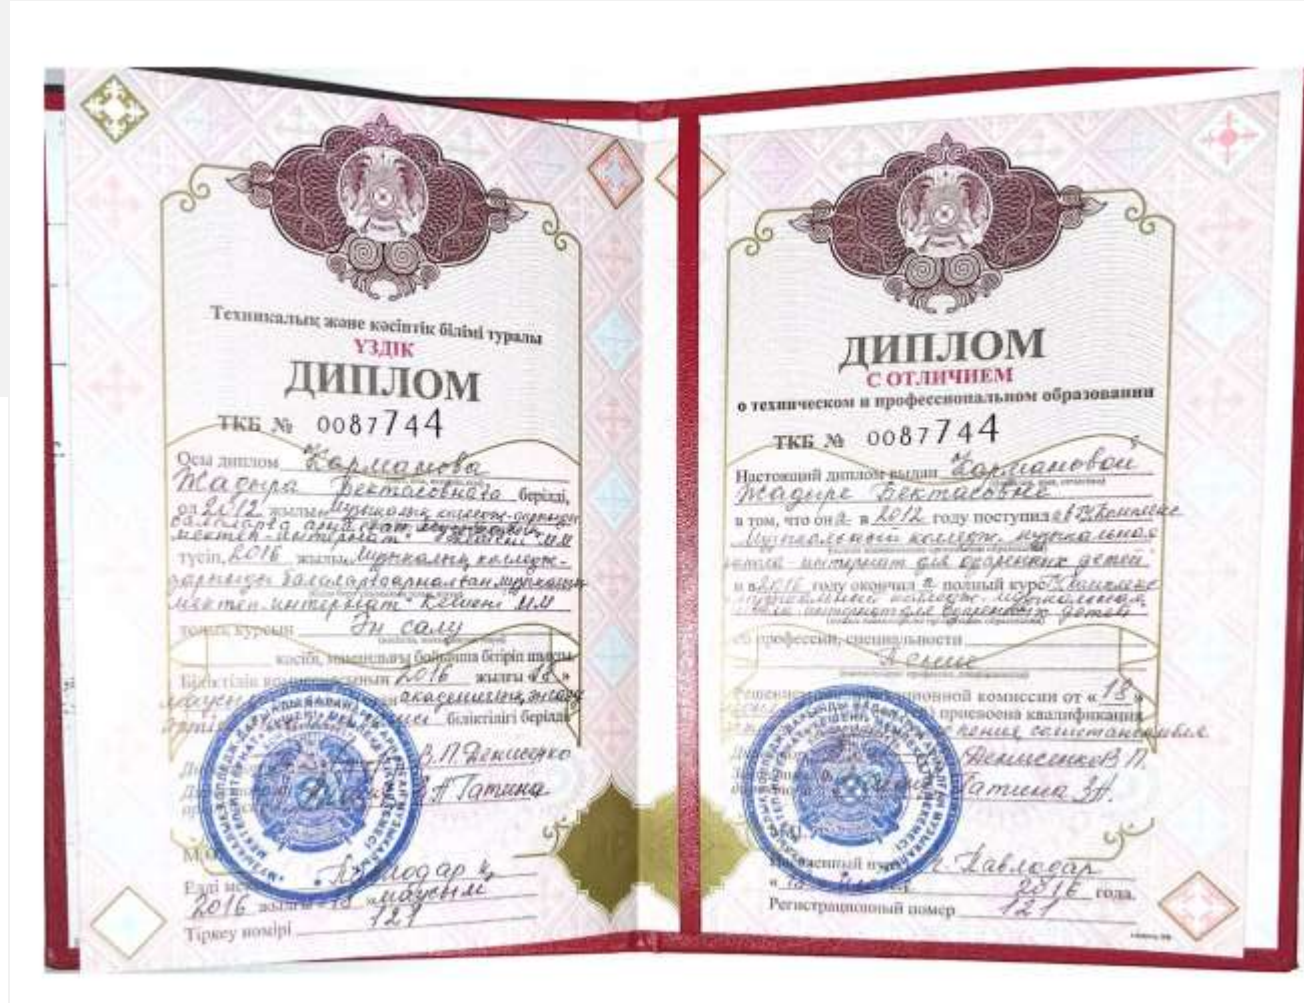 Техникалық және кәсіптік білімі туралы
ҮЗДІК
ДИПЛОМ
ТКБ № 0087744
Осы диплом Карманова
Жадыра Бектасовнаға берілді,
ол 2012 жылы Музыкалық колледж-дарынды
балаларға арналған музыкалық
мектеп-интернат" кешені ММ
түсіп, 2016 жылы Музыкалық колледж-
дарынды балаларға арналған музыкалық
мектеп-интернат" кешені ММ
толық курсын Ән салу
кәсібі, мамандығы бойынша бітіріп шықты.
Біліктілік комиссиясының 2016 жылғы «18»
маусым академиялық ән салу
біліктілігі берілді
В.П. Денисенко
З.Н. Гатина
М.О.
Павлодар қ.
Елді мекен
2016 жылғы «18» маусым
Тіркеу нөмірі 121
ДИПЛОМ
С ОТЛИЧИЕМ
о техническом и профессиональном образовании
ТКБ № 0087744
Настоящий диплом выдан Кармановой
Жадыре Бектасовне
в том, что она в 2012 году поступила в Комплекс
Музыкальный колледж- музыкальная
школа-интернат для одаренных детей
и в 2016 году окончила полный курс Комплекс
музыкальный колледж- музыкальная
школа-интернат для одаренных детей"
по профессии, специальности
Пение
Решением квалификационной комиссии от «18»
присвоена квалификация
пения, солист ансамбля
Денисенко В.П.
Гатина З.Н.
М.П.
Населенный пункт г. Павлодар
«18» 2016 года.
Регистрационный номер 121